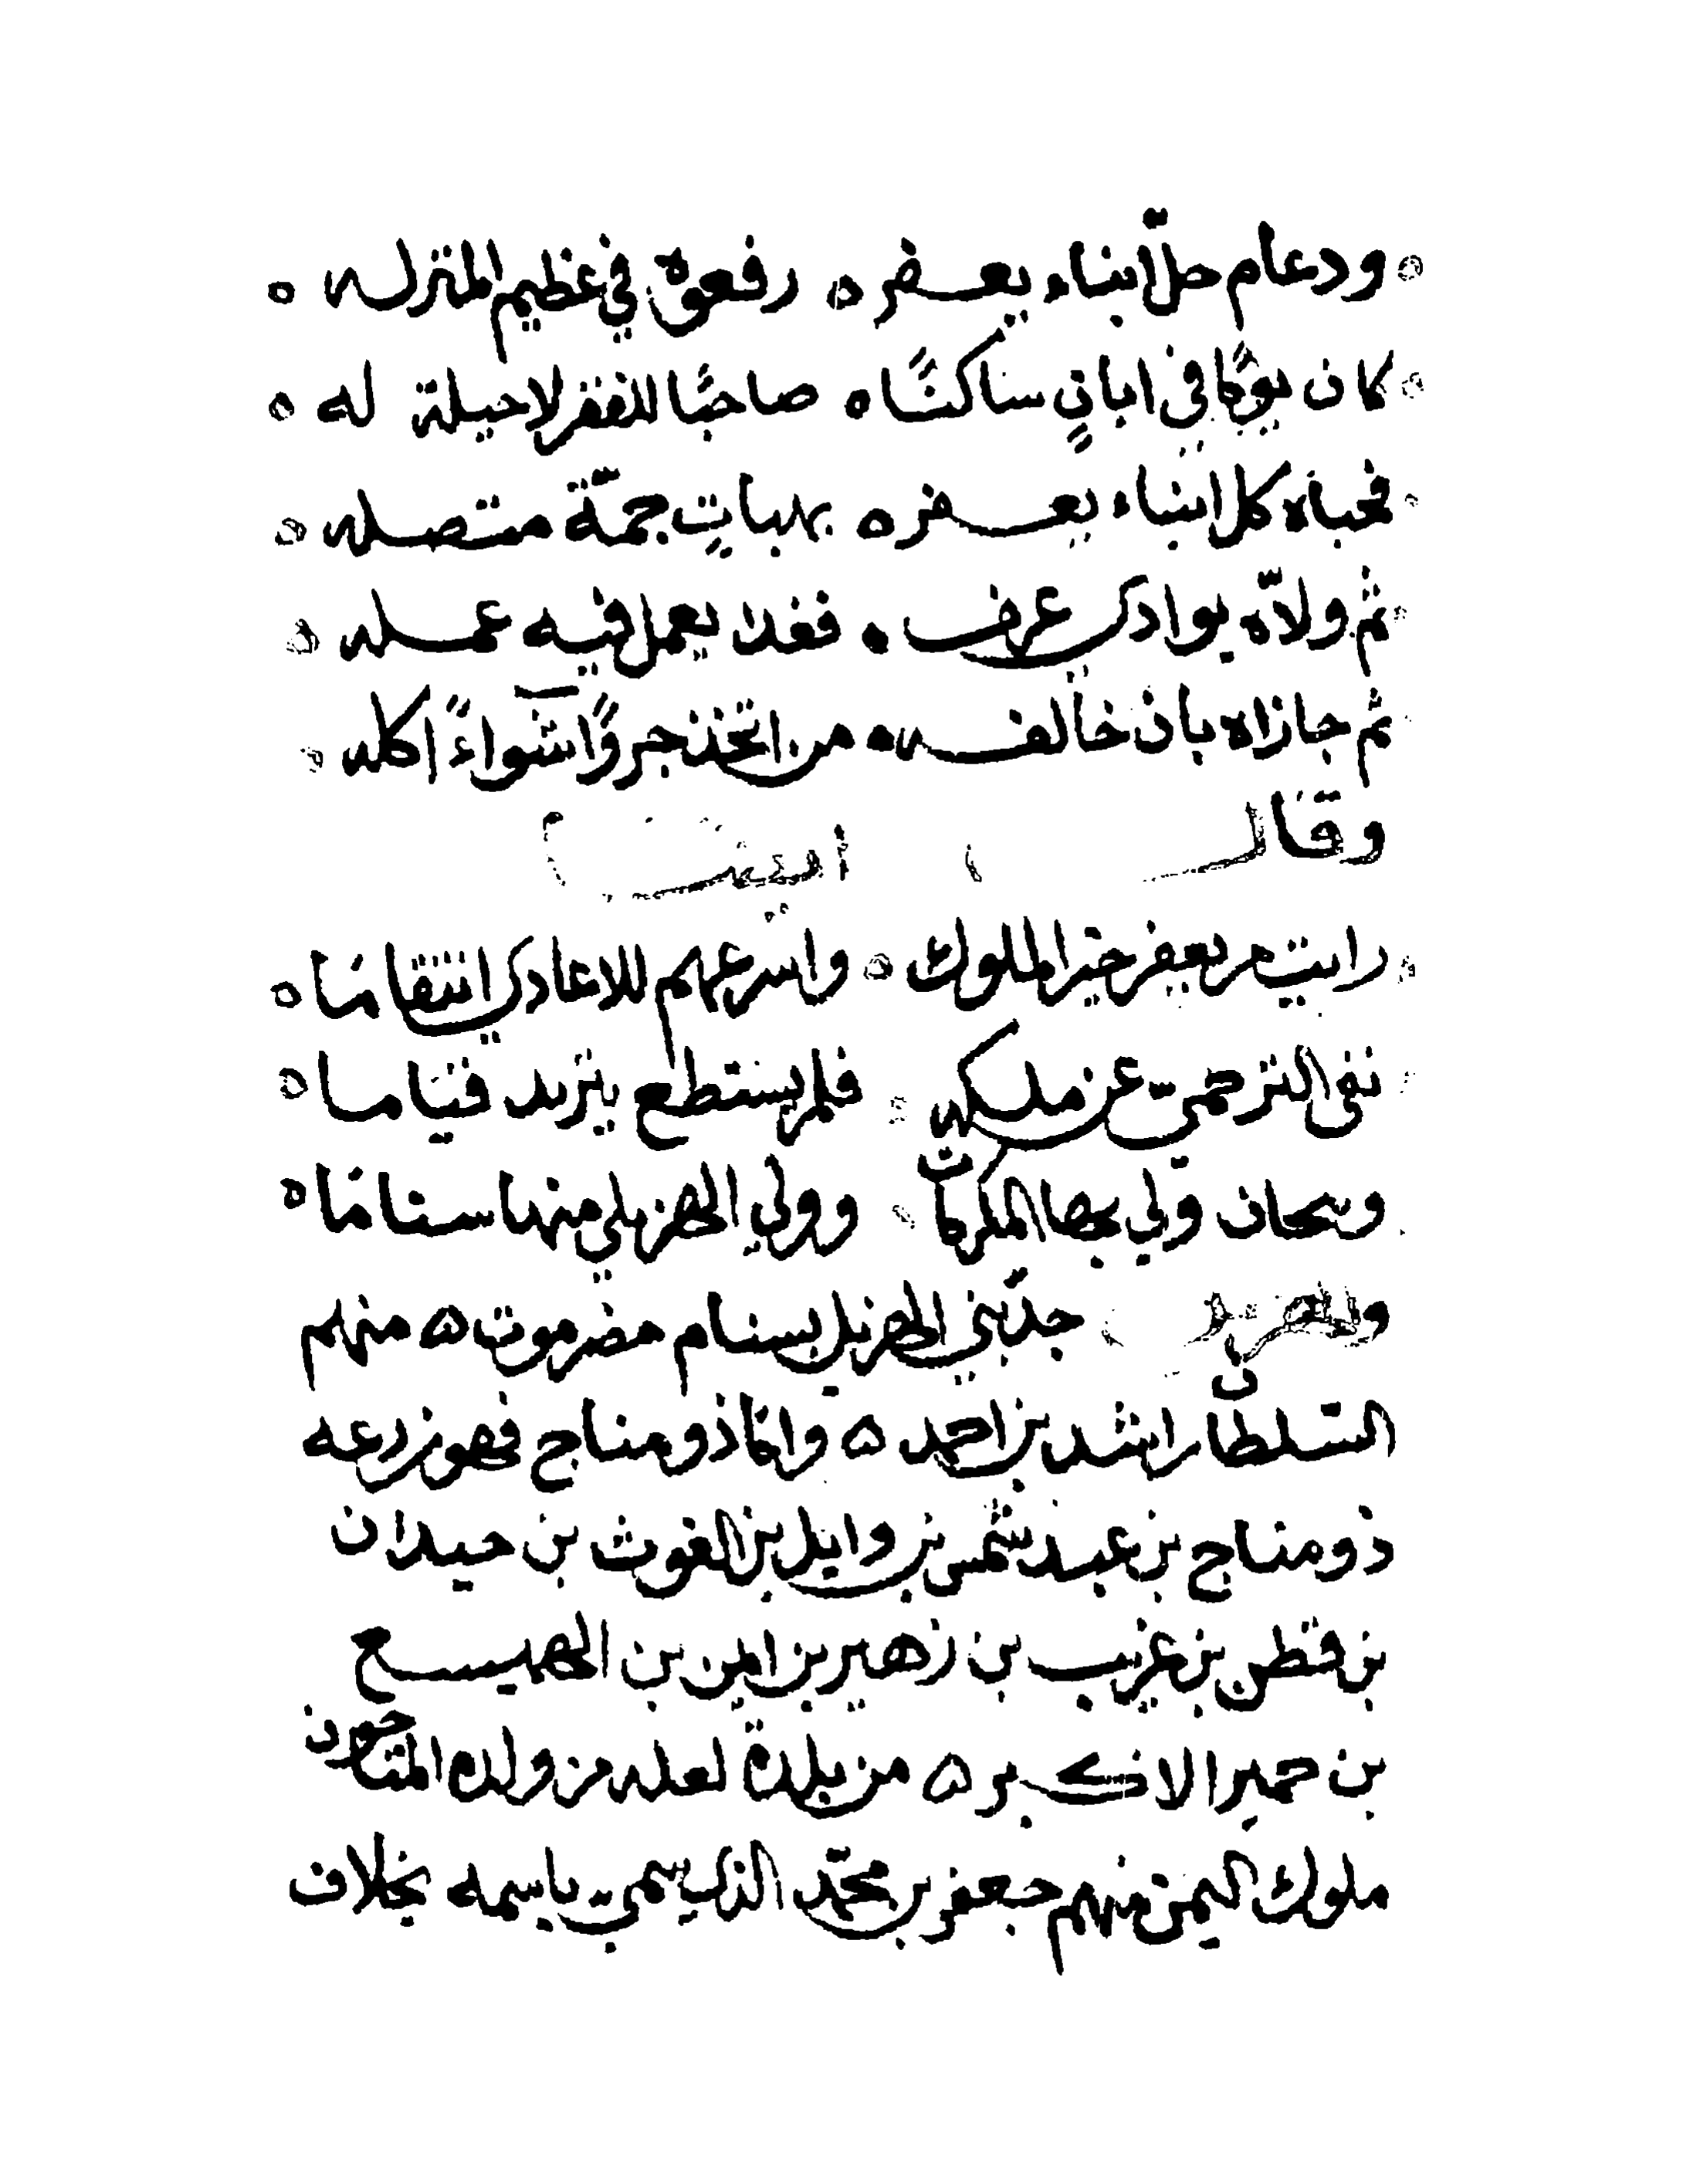 ودعام حلّ ابناء يعفر ه رفعوه في عظيم المنزله ه
كان يومًا في ابانٍ ساكنًا ه صاحبًا للفقر لا حيلة له ه
فحباه كل ابناء يعفر ه بهباتٍ جمّة متصله ه
ثم ولاّه بوادي عرف ه فغدا يعمل فيه عمله ه
ثم جازاه بان خالفه ه من اتخذ جروًا شواءً اكله ه
وقال ايضا
رايت يعفر خير الملوك ه واسرعهم للاعادي انتقامًا ه
نفى الترخمي عن ملكه ه فلم يستطع يزيد قياما ه
وسحان ولّي بها المكرمات ه وولي الهزيلي منها سنامًا ه
والهزيل جدّ بني الهزيل بسنام حضرموت ه منهم
السّلطان راشد بن احمد ه واما ذو مناح فهو زرعه
ذو مناح بن عبد شمس بن وايل بن الغوث بن حيدان
بن قطن بن عريب بن زهير بن ايمن بن الهميسع
بن حمير الاكبر ه من بلدة لعله من ولده المناخيون
ملوك اليمن منهم جعفر بن محمّد الذي سمي باسمه مخلاف